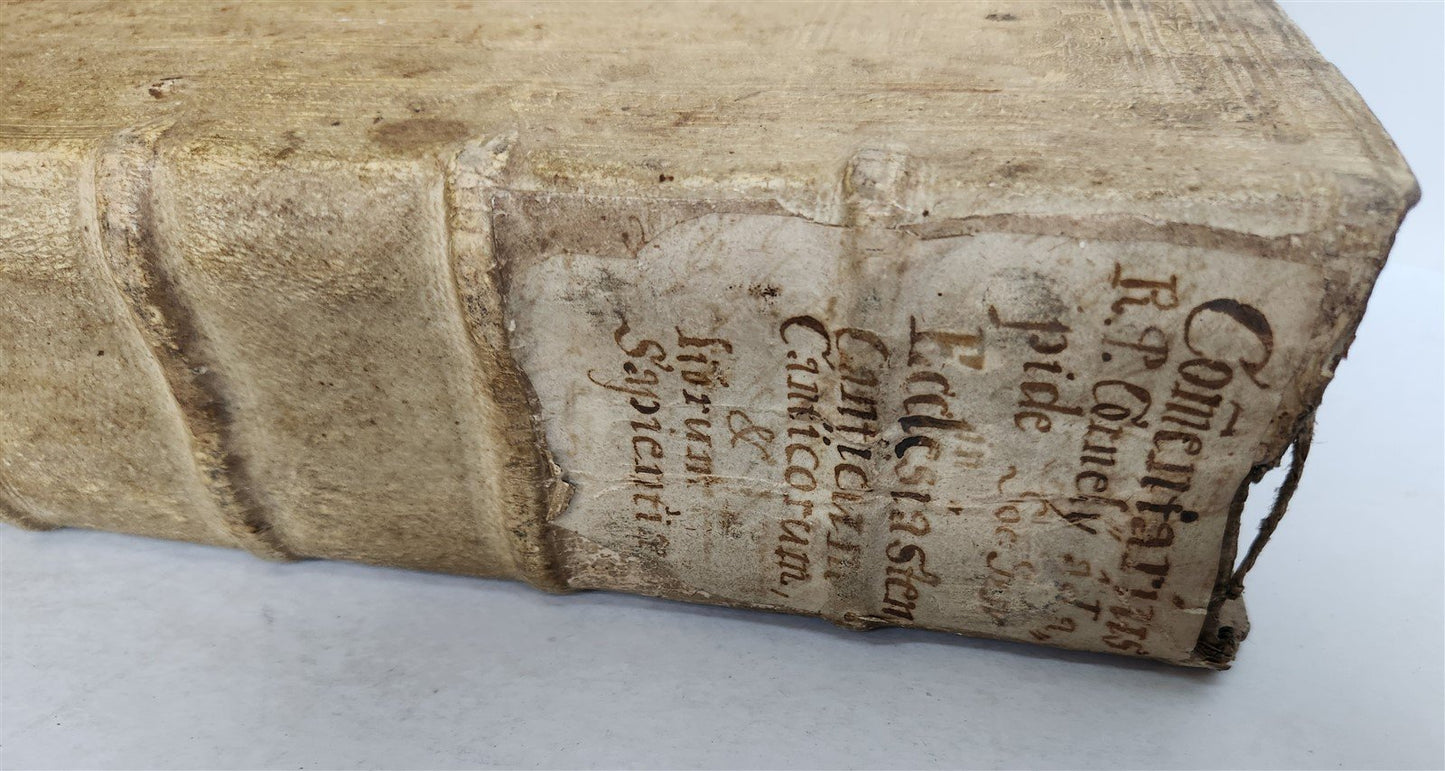 Com̄entarius
R. P. Cornelÿ à La
pide
in
Ecclesiasten
Canticum
Canticorum,
&
librum
Sapientiæ